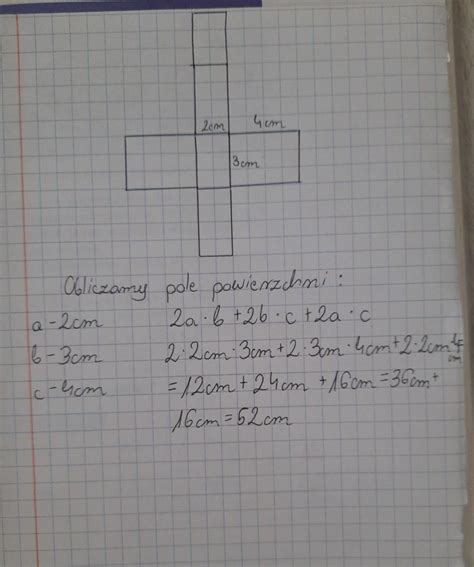 2cm 4cm
3cm
Obliczamy pole powierzchni:
a-2cm 2a·b+2b·c+2a·c
b-3cm 2·2cm·3cm+2·3cm·4cm+2·2cm·4cm
c-4cm =12cm+24cm+16cm=36cm+
16cm=52cm